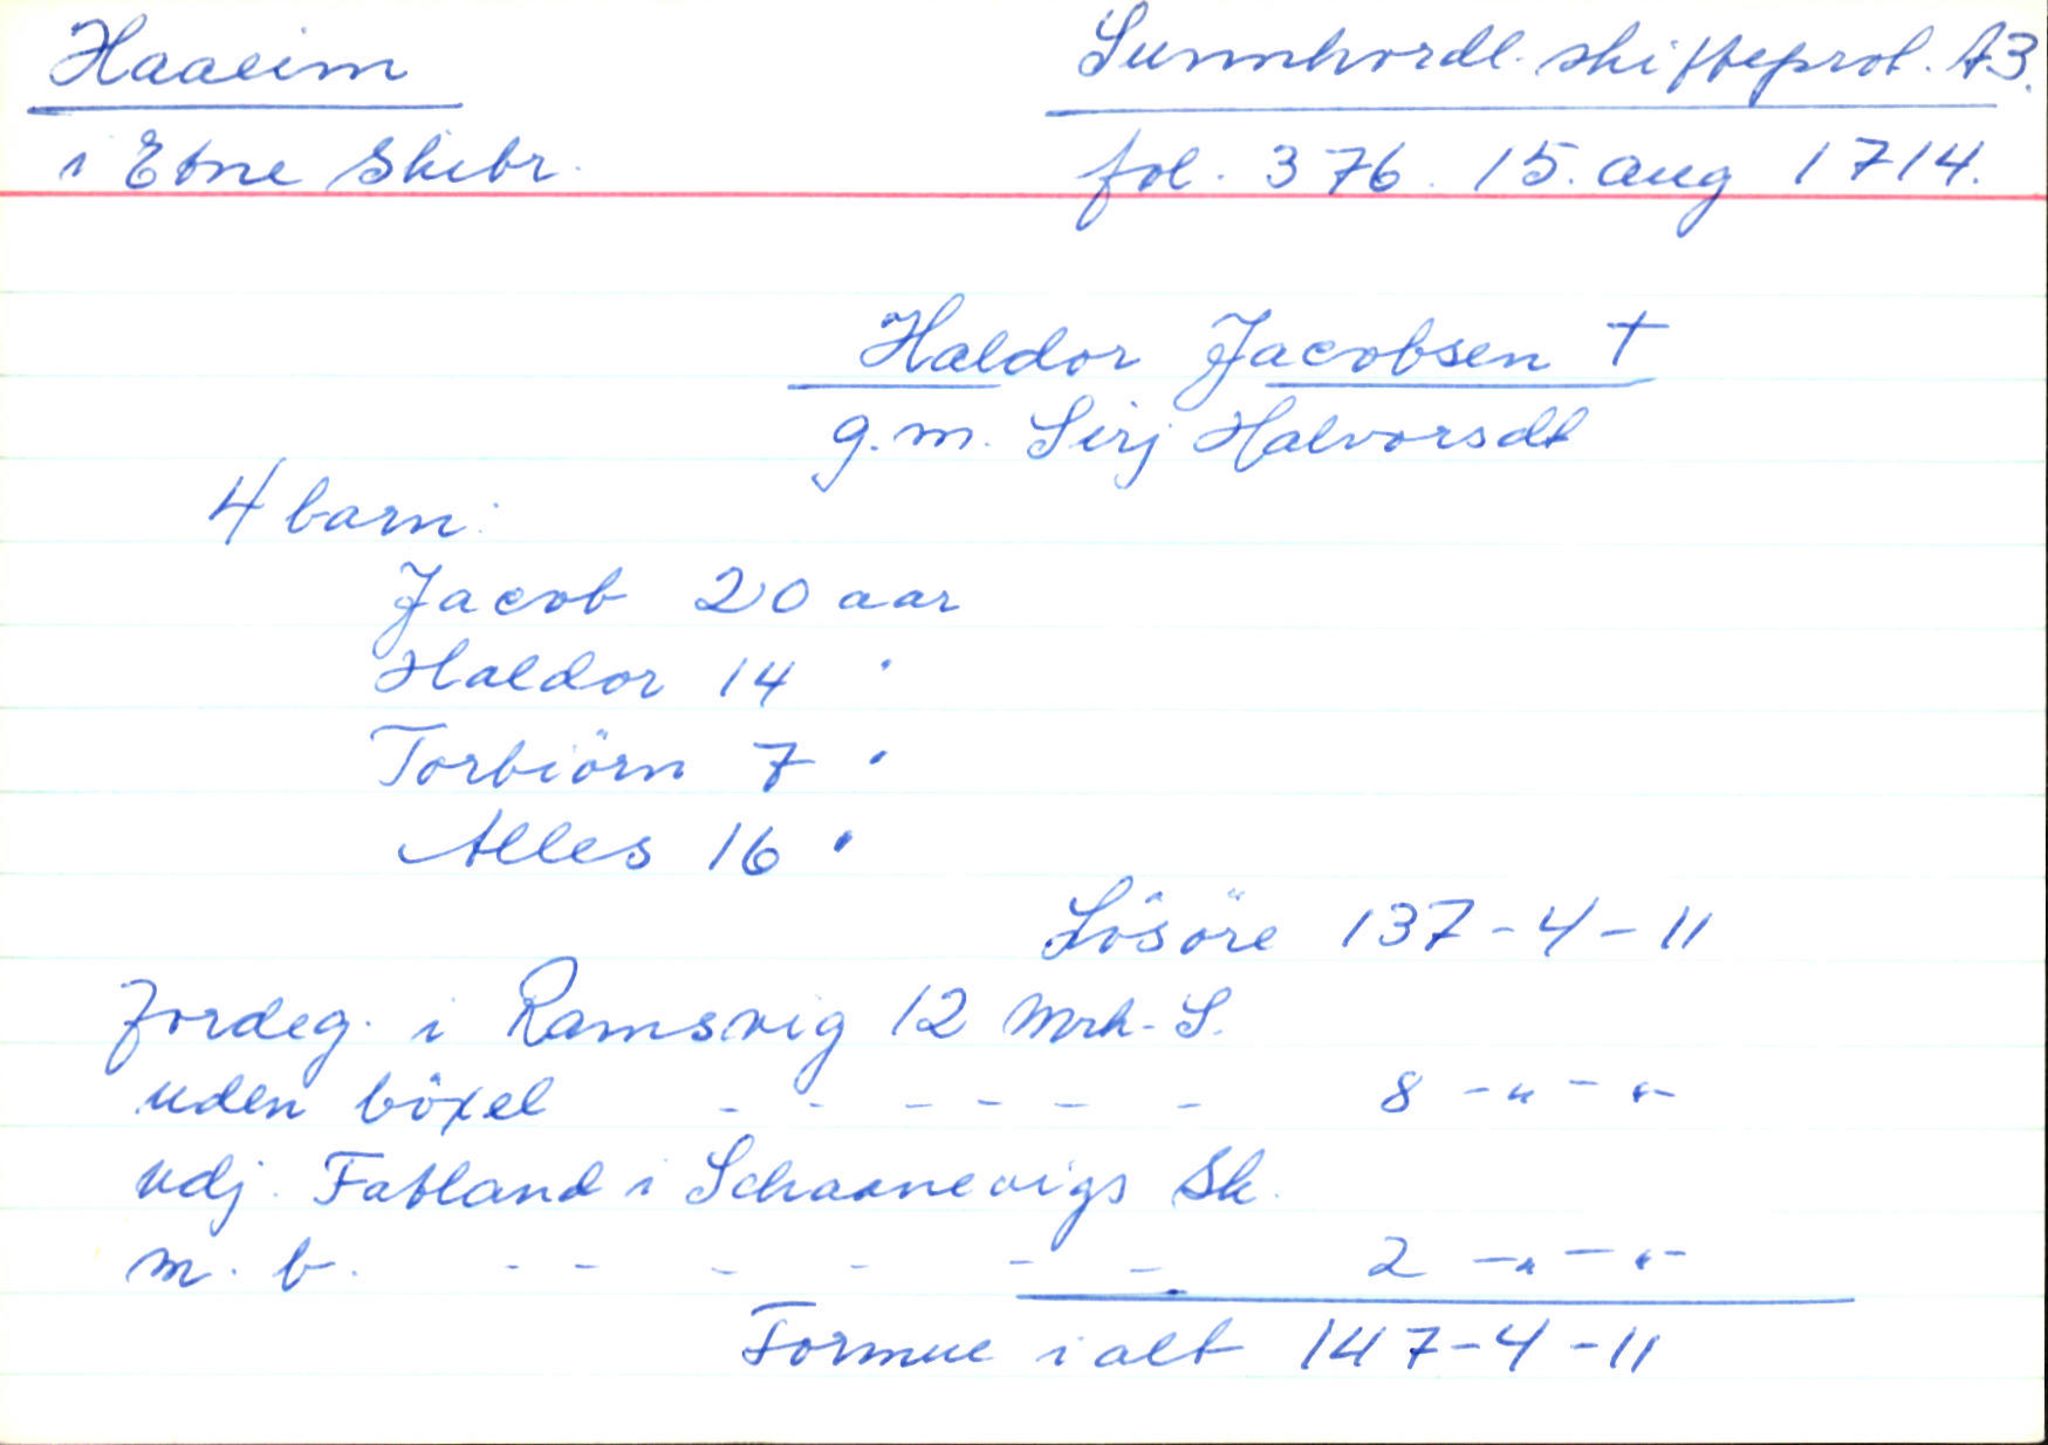 Haaeim
Sunnhordl. skifteprot. A3.
i Etne Skibr.
fol. 376. 15. aug 1714.
Haldor Jacobsen †
g.m. Sirj Halvorsdt
4 barn:
Jacob 20 aar
Haldor 14 "
Torbiörn 7 "
Alles 16 "
Lösöre 137-4-11
Jordeg. i Ramsvig 12 Mrk. S.
uden böxel - - - - - - 8 - " - " -
udj. Fatland i Schaanevigs Sk.
m. b. - - - - - - 2 - " - " -
Formue i alt 147-4-11